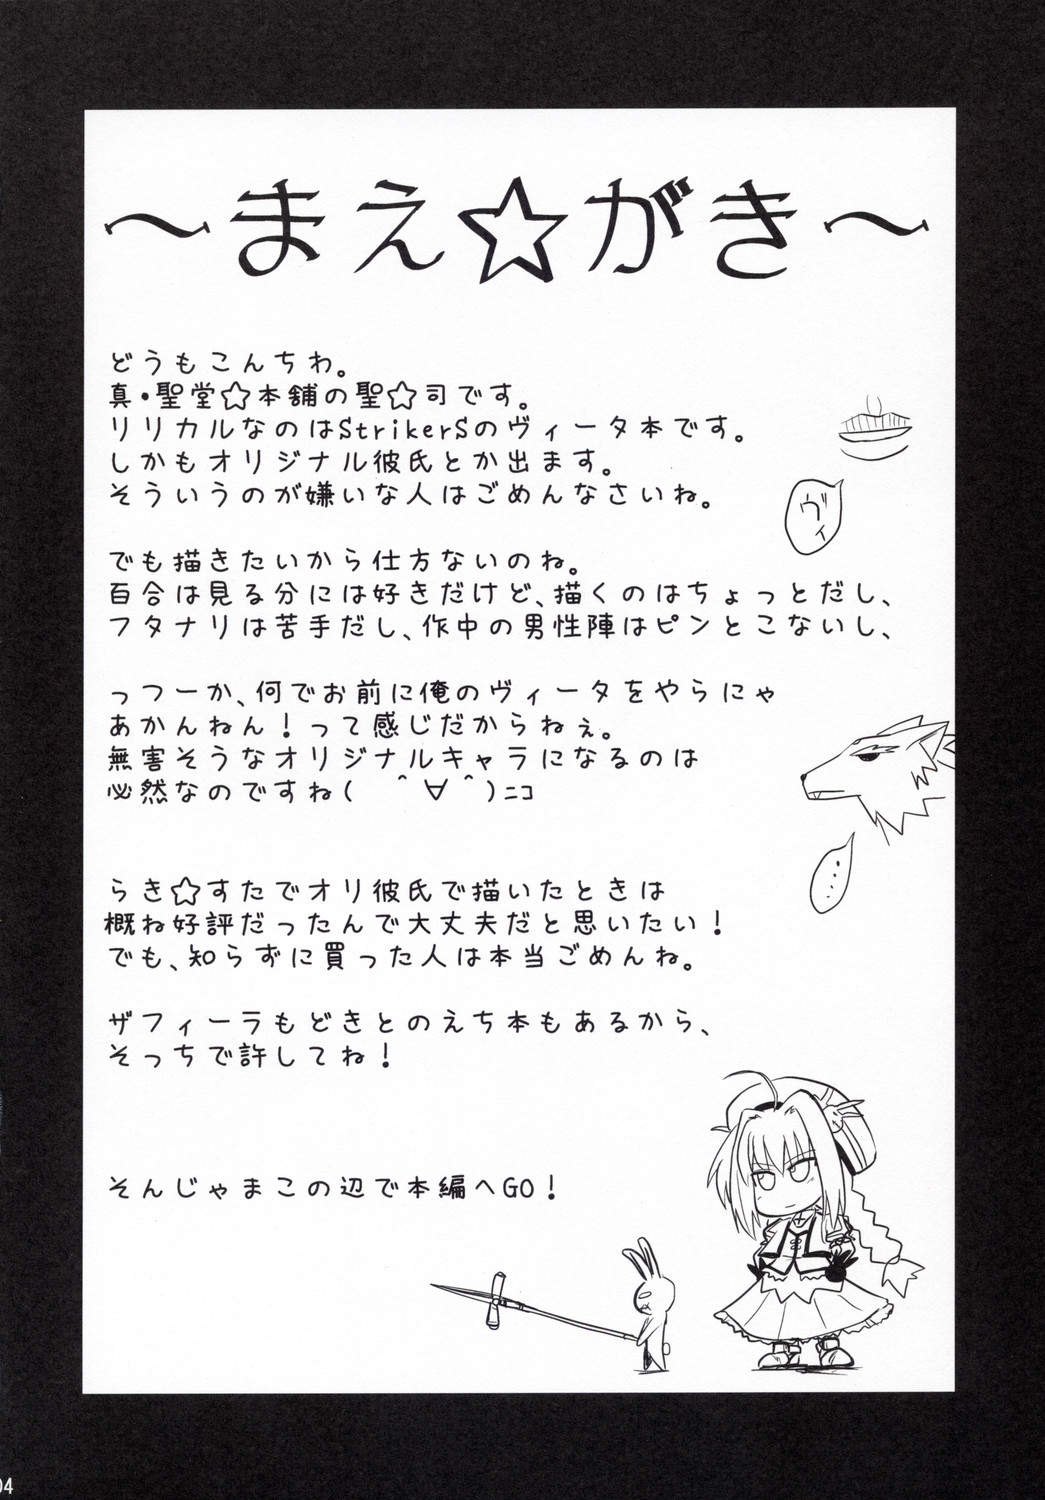 ～まえ☆がき～
どうもこんちわ。
真・聖堂☆本舗の聖☆司です。
リリカルなのはStrikerSのヴィータ本です。
しかもオリジナル彼氏とか出ます。
そういうのが嫌いな人はごめんなさいね。
ヴィ
でも描きたいから仕方ないのね。
百合は見る分には好きだけど、描くのはちょっとだし、
フタナリは苦手だし、作中の男性陣はピンとこないし、
っつーか、何でお前に俺のヴィータをやらにゃ
あかんねん！って感じだからねぇ。
無害そうなオリジナルキャラになるのは
必然なのですね(　＾∀＾)ﾆｺ
‥‥
らき☆すたでオリ彼氏で描いたときは
概ね好評だったんで大丈夫だと思いたい！
でも、知らずに買った人は本当ごめんね。
ザフィーラもどきとのえち本もあるから、
そっちで許してね！
そんじゃまこの辺で本編へGO！
04